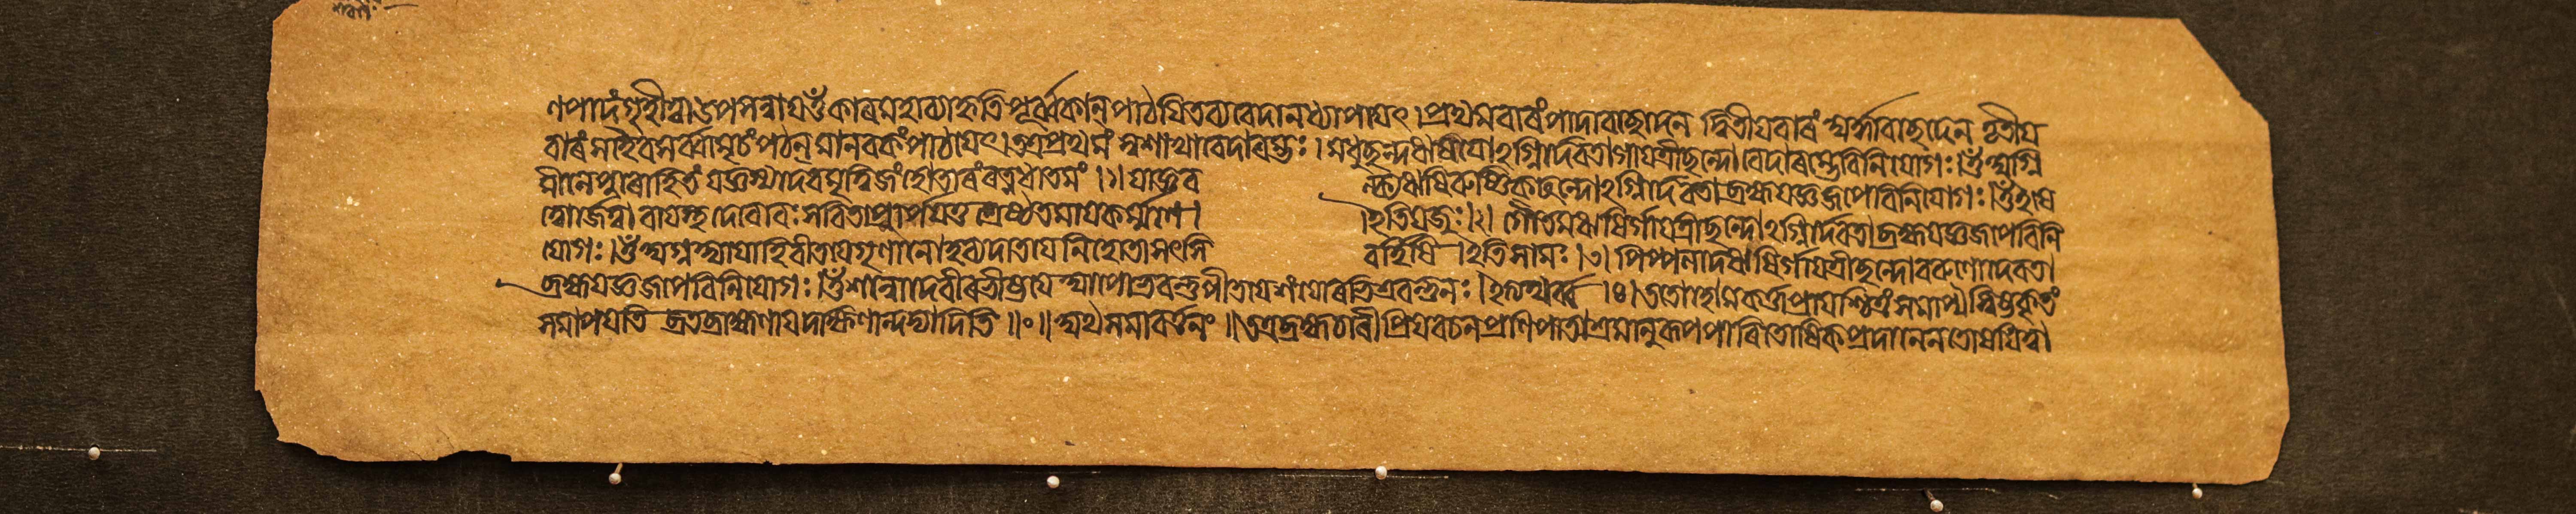 ণপাদং গৃহীত্বা উপসন্নায ওঁকাৰমহাব্যাহৃতিপূৰ্ব্বকান্ পাঠযিতব্য বেদানধ্যাপযেৎ । প্ৰথমবাৰং পাদাবচ্ছেদেন দ্বিতীযবাৰং অৰ্দ্ধাবচ্ছেদেন তৃতীয
বাৰং সৰ্ব্বামৃচং পঠন্ মানবকং পাঠযেৎ । তত্ৰ প্ৰথমং স্বশাখাবেদাৰম্ভঃ । মধুচ্ছন্দঋষিৰ্গ্নিৰ্দেবতা গাযত্ৰীচ্ছন্দো বেদাৰম্ভে বিনিযোগঃ । ওঁ অগ্নি
মীলে পুৰোহিতং যজ্ঞস্য দেবমৃত্বিজং হোতাৰং ৰত্নধাতমং । ১ । যাজ্ঞব ল্ক্যঋষিৰুষ্ণিক্ছন্দোঽগ্নিৰ্দেবতা ব্ৰহ্মযজ্ঞজপে বিনিযোগঃ । ওঁ ইষে
ত্বোৰ্জেত্বা বাযবস্থ দেবো বঃ সবিতা প্ৰাৰ্পযতু শ্ৰেষ্ঠতমায কৰ্ম্মণে । ইতি যজুঃ । ২ । গৌতমঋষিৰ্গাযত্ৰীচ্ছন্দোঽগ্নিৰ্দেবতা ব্ৰহ্মযজ্ঞজপে বিনি
যোগঃ । ওঁ অগ্ন আযাহি বীতযে গৃণানো হব্যদাতযে নি হোতা সৎসি বৰ্হিষি । ইতি সামঃ । ৩ । পিপ্পলাদঋষিৰ্গাযত্ৰীচ্ছন্দো বৰুণো দেবতা
ব্ৰহ্মযজ্ঞজপে বিনিযোগঃ । ওঁ শন্নো দেবীৰভীষ্টযে আপো ভবন্তু পীতযে শংযোৰভিস্ৰবন্তু নঃ । ইত্যথৰ্ব্ব । ৪ । ততো হোমকৰ্ত্তা প্ৰাযশ্চিত্তং সমাপ্য স্বিষ্টকৃতং
সমাপযেতি ততো ব্ৰাহ্মণায দক্ষিণান্দদ্যাদিতি ॥ ० ॥ অথ সমাবৰ্ত্তনং ॥ তত্ৰ ব্ৰহ্মচাৰী প্ৰিযবচনপ্ৰণিপাত শ্ৰমানুৰূপপাৰিতোষিকপ্ৰদানেন তোষযিত্বা